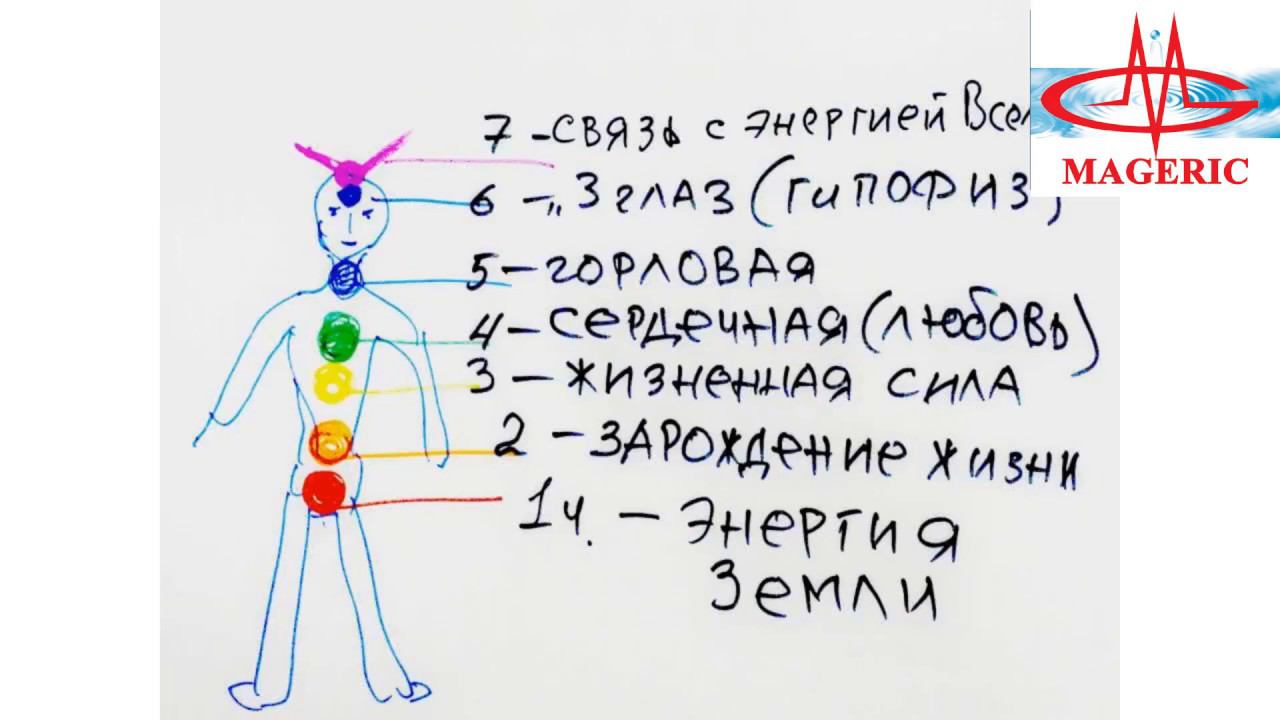 7 - СВЯЗЬ С ЭНЕРГИЕЙ
6 - „ 3 ГЛАЗ (ГИПОФИЗ)
5 - ГОРЛОВАЯ
4 - СЕРДЕЧНАЯ (ЛЮБОВЬ)
3 - ЖИЗНЕННАЯ СИЛА
2 - ЗАРОЖДЕНИЕ ЖИЗНИ
1ч. - ЭНЕРГИЯ
ЗЕМЛИ
MAGERIC